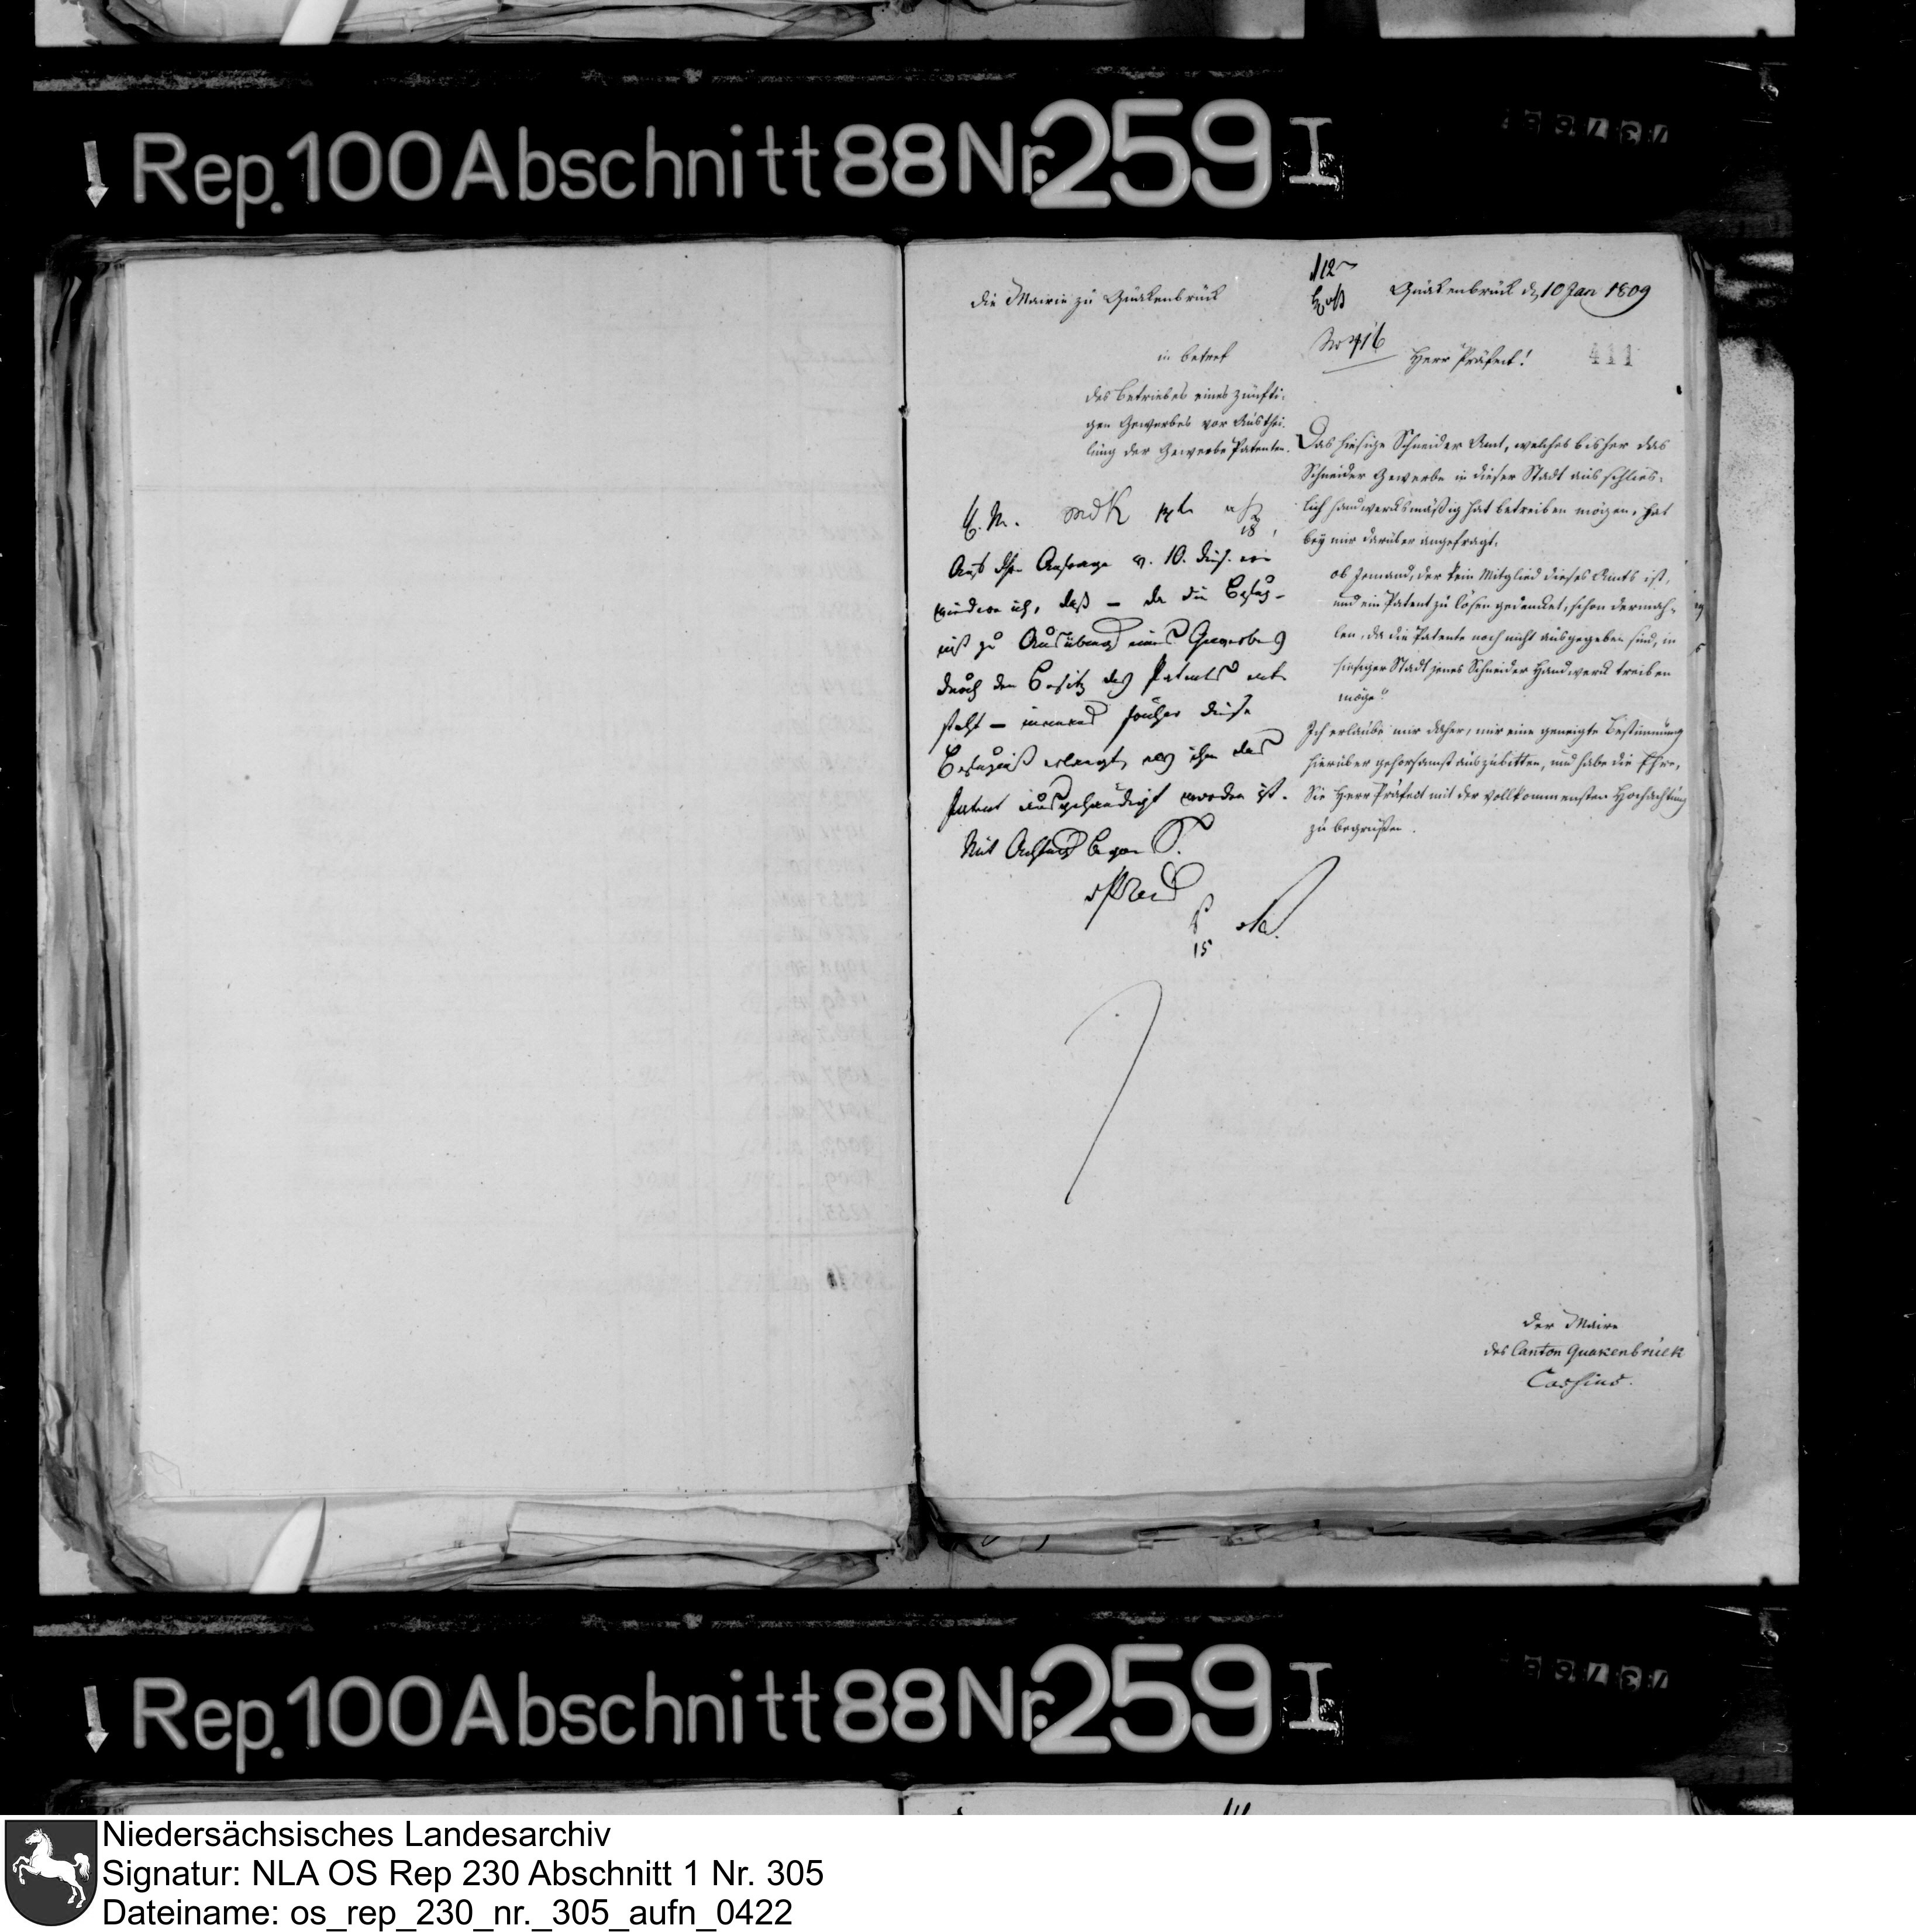 Rep. 100 Abschnitt 88 Nr. 259 I
die Mairie zu Quakenbrück
in betref
des Betriebes eines zünfti-
gen Gewerbes vor Austhei-
lung der Gewerbe Patenten.
Quakenbrück d. 10 Jan 1809
No 416
Herr Präfect!
411
Das hiesige Schneider Amt, welches bisher das
Schneider Gewerbe in dieser Stadt ausschlies-
lich handwerksmäßig hat betreiben mögen, hat
bey mir darüber angefragt.
ob Jemand, der kein Mitglied dieses Amts ist,
und ein Patent zu lösen gedenket, schon dermah-
len, da die Patente noch nicht ausgegeben sind, in
hiesiger Stadt jenes Schneider Handwerck treiben
möge?
Ich erlaube mir daher, mir eine geneigte Bestimmung
hierüber gehorsamst auszubitten, und habe die Ehre,
Sie Herr Präfect mit der vollkommensten Hochachtung
zu begrüßen.
der Maire
des Canton Quakenbrück
18
Auf Ihre Anfrage v. 10. dies. er-
wiedere ich, daß – da die Befug-
niß zu Ausübung eines Gewerbes
durch den Besitz des Patents ent-
steht – niemand früher diese
Befugniß erlangt, als ihm das
Patent ausgehändigt worden ist.
Mit Achtung
15
Rep. 100 Abschnitt 88 Nr. 259 I
Niedersächsisches Landesarchiv
Signatur: NLA OS Rep 230 Abschnitt 1 Nr. 305
Dateiname: os_rep_230_nr._305_aufn_0422